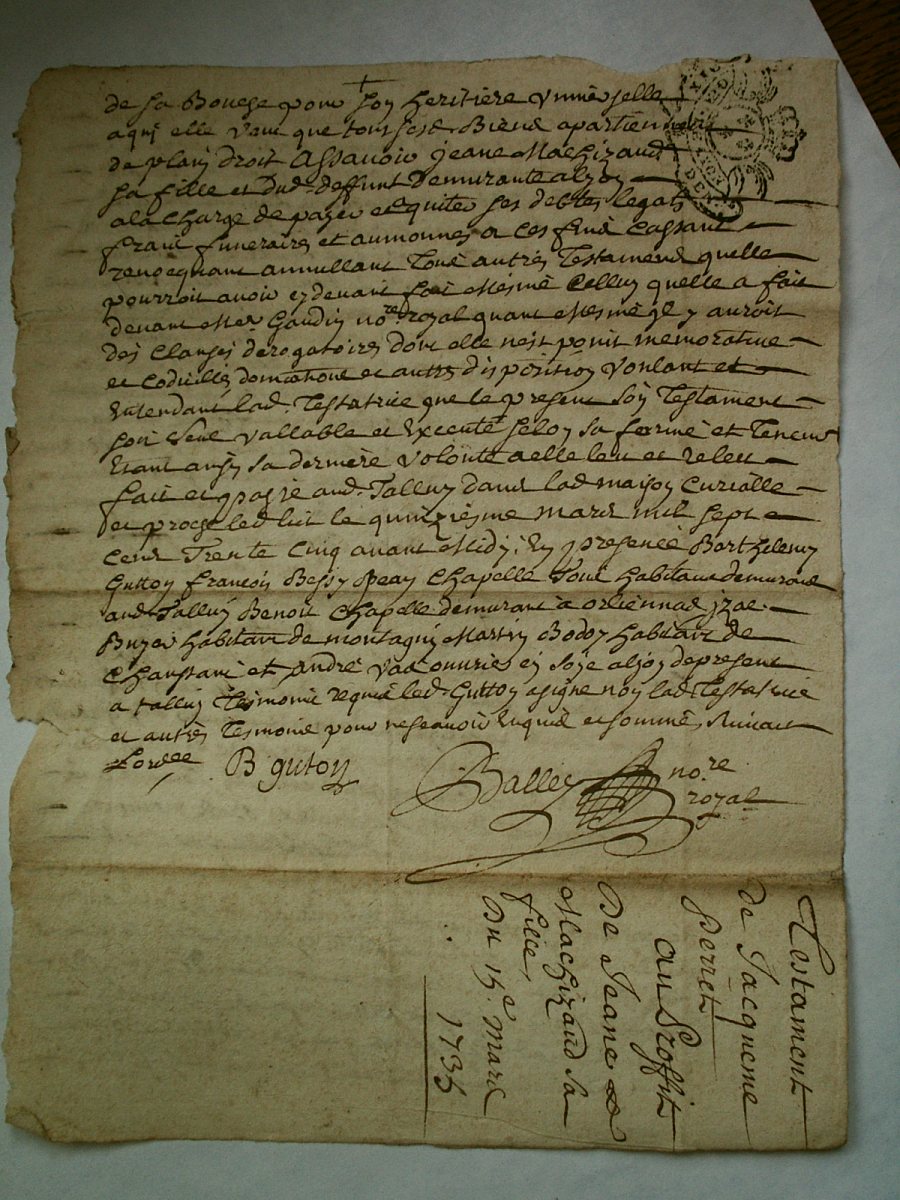 de sa Bouche pour son heritiere universelle
a qui elle veut que tous sesd. Biens apartiennent
de plain droit assavoir Jeane Machizaud
sa fille et dud. deffunt demurante a lyon
a la charge de payer et aquiter ses debtes legats
frais funeraires et aumonnes a ces fins cassant
revocquant annullant tous autres Testamens quelle
pourroit avoir cy devant fait mesme celluy quelle a fait
devant Mer. Gaudin nore. royal quant mesme il y auroit
des clauses derogatoires dont elle n'est point memorative
et codicilles donnations et autres disposition voulant et
entendant lad. Testatrice que le present son Testament
soit seul vallable et executé selon sa forme et teneur
etant ainsy sa derniere volonté a elle leu et releu
fait et passé aud. Talluy dans lad. maison curialle
et proche led. lit le quinziesme mars mil sept
cens Trente cinq avant midy, en presence Barthelemy
Gutton françois Bessy Jean Chapelle Tous habitans demurans
aud. Talluy Benoit Chapelle demurant à orliennas
Buyer habitant de montagny Martin Bodoy habitant de
Chaussant et André ouvrier en soye a lyon de present
a talluy Tesmoins requis led. Gutton a signé non lad. Testatrice
et autres Tesmoins pour ne scavoir enquis et sommés suivant
Lordce
B guton
Balley nore. royal
Testament
de Jacqueme
Perret
au Proffit
De Jeane
Machizaud sa
fille,
Du 15e. mars
1735